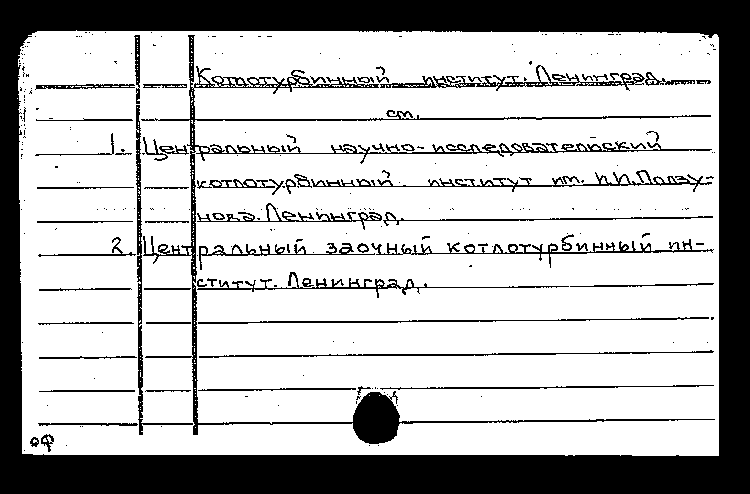 Котлотурбинный институт. Ленинград.
см.
1. Центральный научно-исследовательский
котлотурбинный институт им. И.И.Ползу-
нова. Ленинград.
2. Центральный заочный котлотурбинный ин-
ститут. Ленинград.
оф